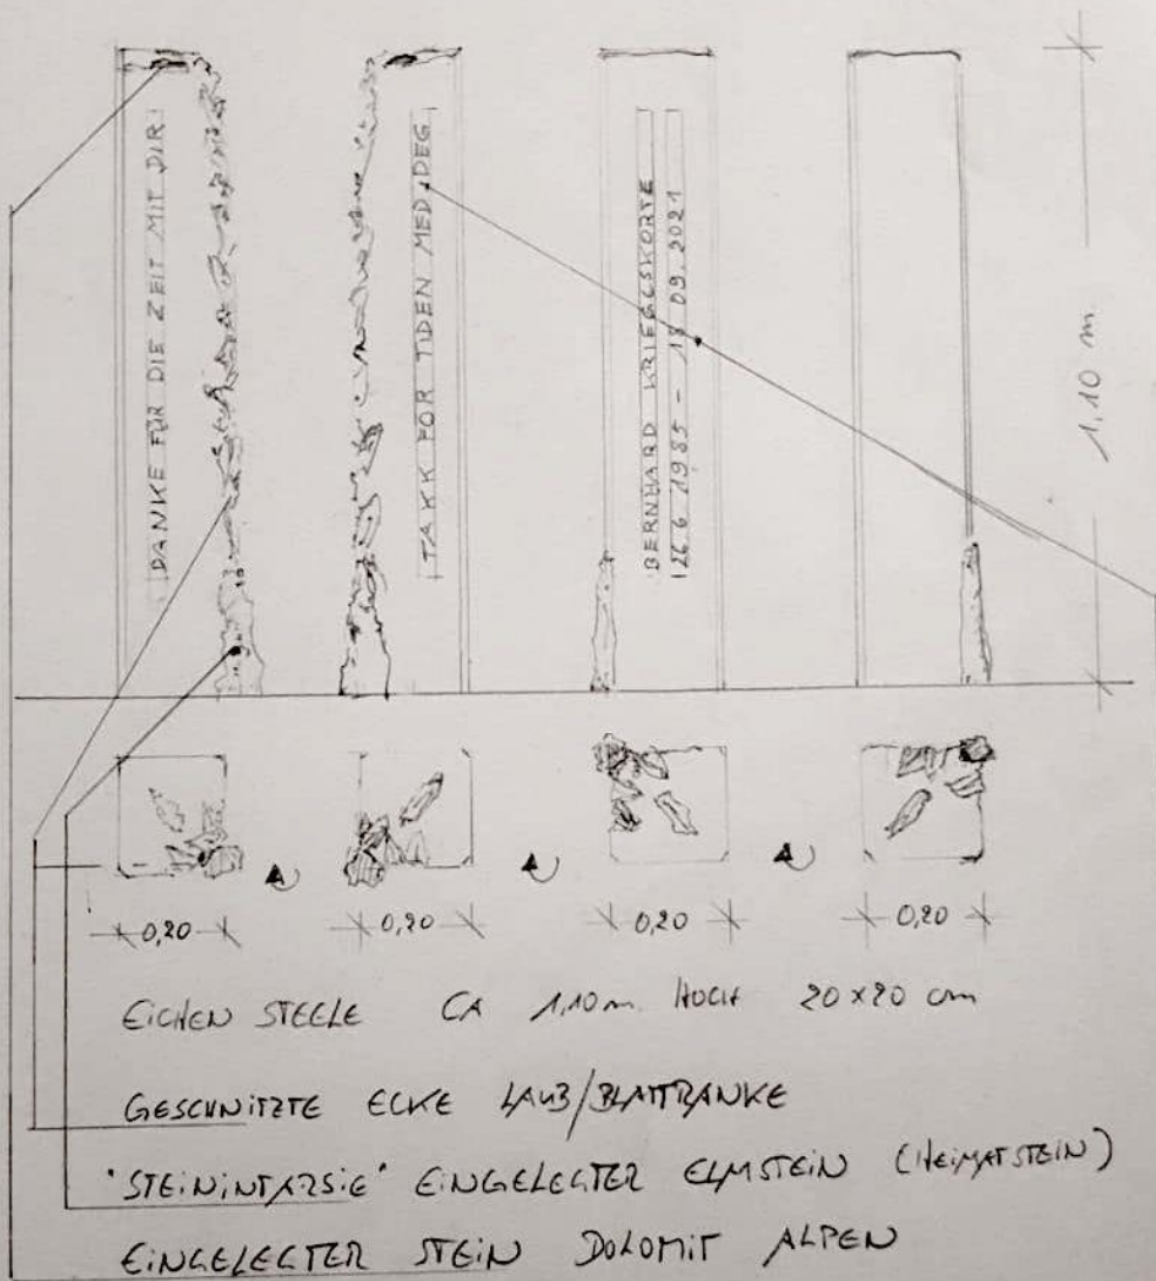 DANKE FÜR DIE ZEIT MIT DIR
TAKK FOR TIDEN MED DEG
BERNHARD KRIEGSKORTE
26.6 1985 - 18 09. 2021
1,10 m.
0,20
0,20
0,20
0,20
EICHEN STEELE CA 1,10 m. HOCH 20x20 cm
GESCHNITZTE ECKE LAUB/BLATTRANKE
"STEININTARSIE" EINGELEGTER ELMSTEIN (HEIMATSTEIN)
EINGELEGTER STEIN DOLOMIT ALPEN